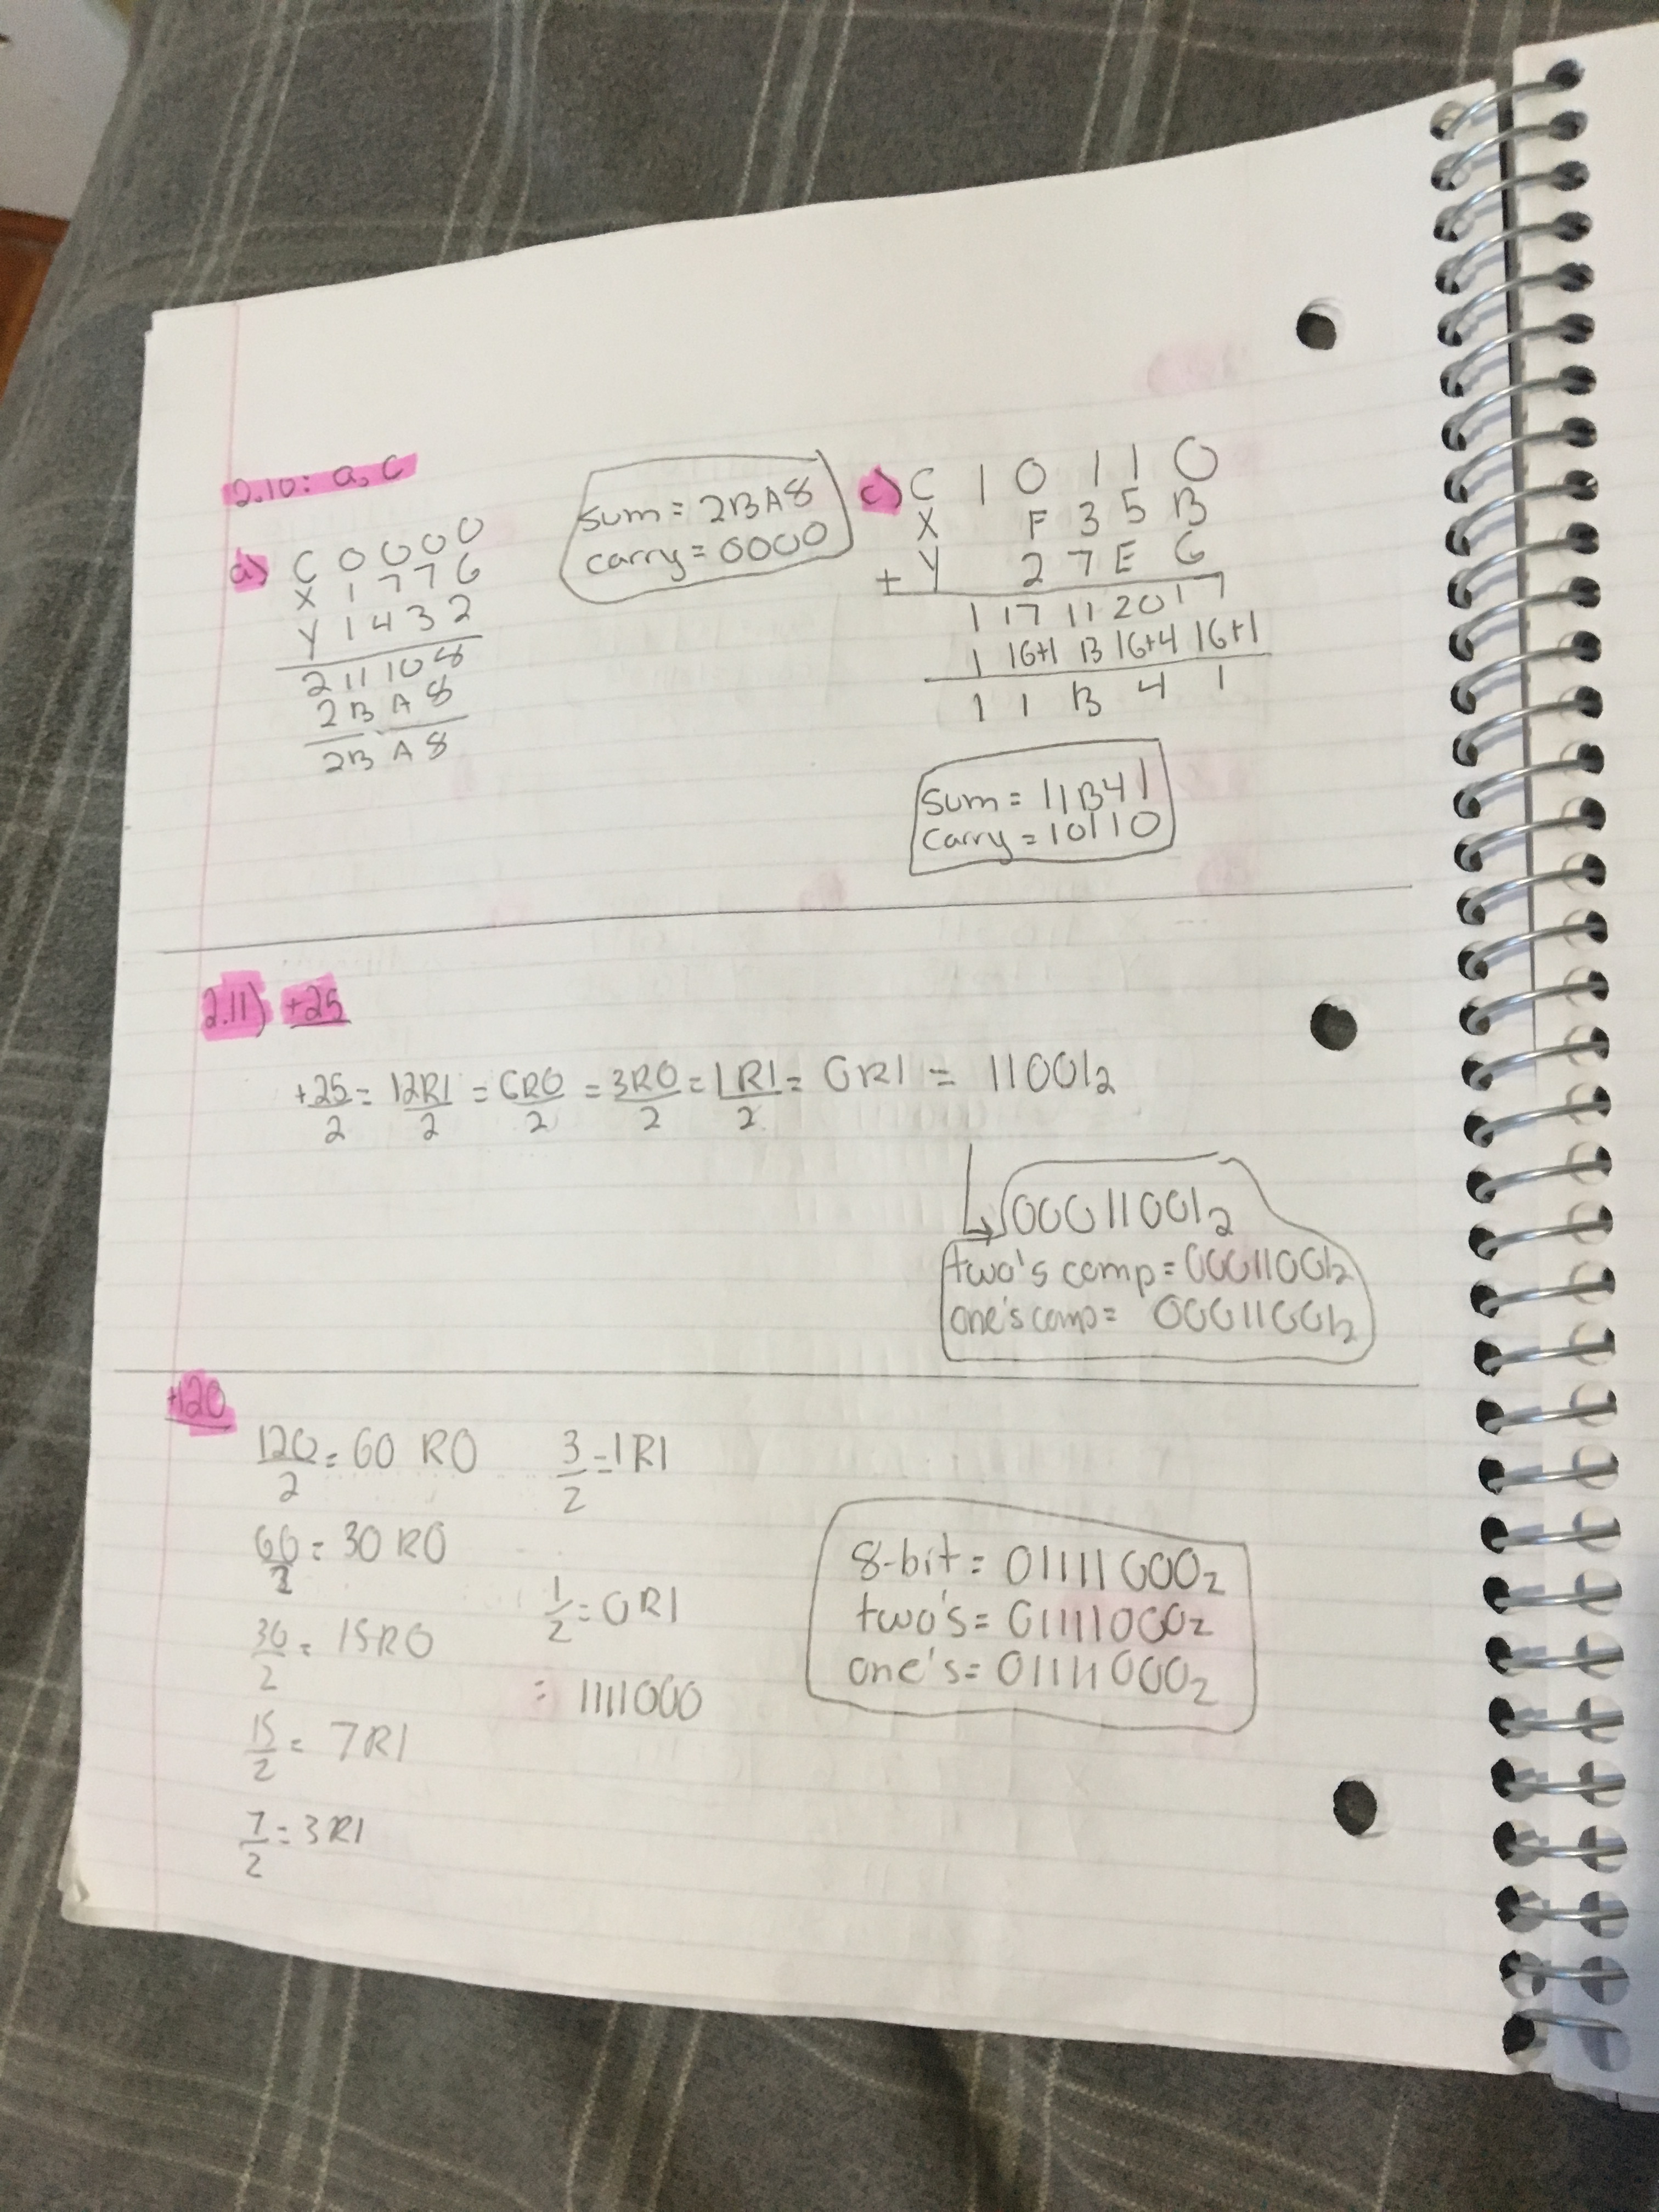 2.10: a, c
a) C 0 0 0 0
X 1 7 7 6
Y 1 4 3 2
2 11 10 8
2 B A 8
2B A 8
sum = 2BA8
carry = 0000
c) C 1 0 1 1 0
X F 3 5 B
+ Y 2 7 E 6
1 17 11 20 17
1 16+1 B 16+4 16+1
1 1 B 4 1
Sum = 11B41
Carry = 10110
2.11) +25
+25/2 = 12R1/2 = 6R0/2 = 3R0/2 = 1R1/2 = 0R1 = 11001₂
00011001₂
two's comp = 00011001₂
one's comp = 00011001₂
+120
120/2 = 60 R0
60/2 = 30 R0
30/2 = 15R0
15/2 = 7R1
7/2 = 3R1
3/2 = 1R1
1/2 = 0R1
= 1111000
8-bit = 01111000₂
two's = 01111000₂
one's = 01111000₂